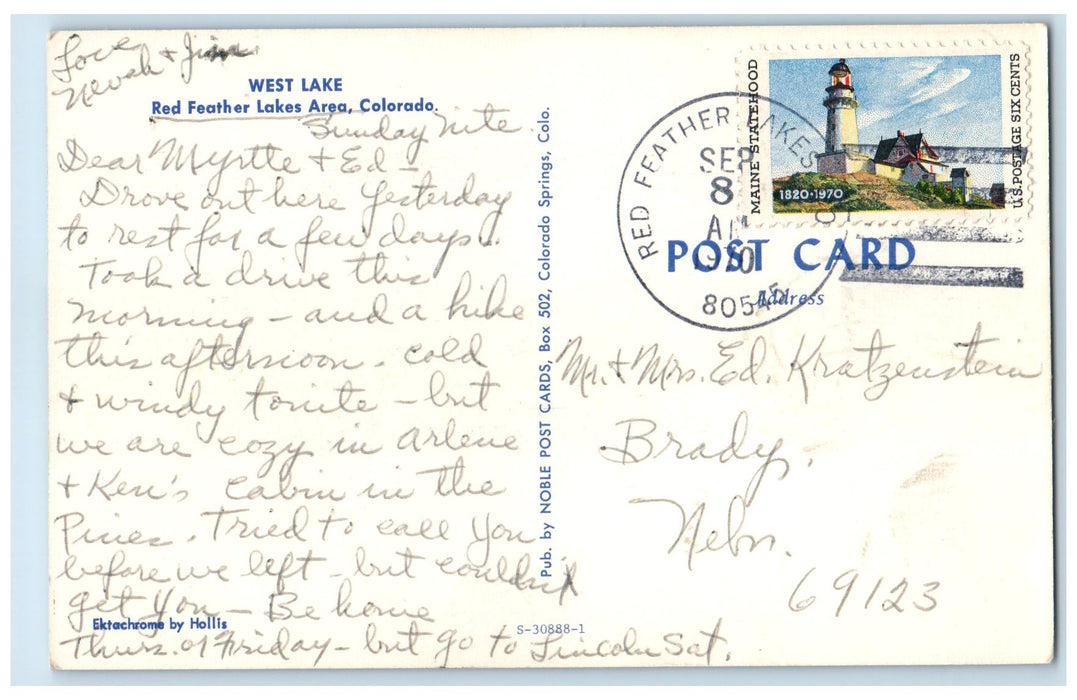 Love
Nevah + Jim
WEST LAKE
Red Feather Lakes Area, Colorado.
Sunday Nite
Dear Myrtle + Ed -
Drove out here yesterday
to rest for a few days.
Took a drive this
morning - and a hike
this afternoon. cold
+ windy tonite - but
we are cozy in Arlene
+ Ken's cabin in the
Pines. Tried to call you
before we left - but couldn't
get you - Be home
Thurs. or Friday - but go to Lincoln Sat.
Ektachrome by Hollis
S-30888-1
Pub. by NOBLE POST CARDS, Box 502, Colorado Springs, Colo.
RED FEATHER LAKES
SEP
8
AM
1970
80545
MAINE STATEHOOD
1820·1970
U.S. POSTAGE SIX CENTS
POST CARD
Address
Mr. + Mrs. Ed. Kratzenstein
Brady,
Nebr.
69123